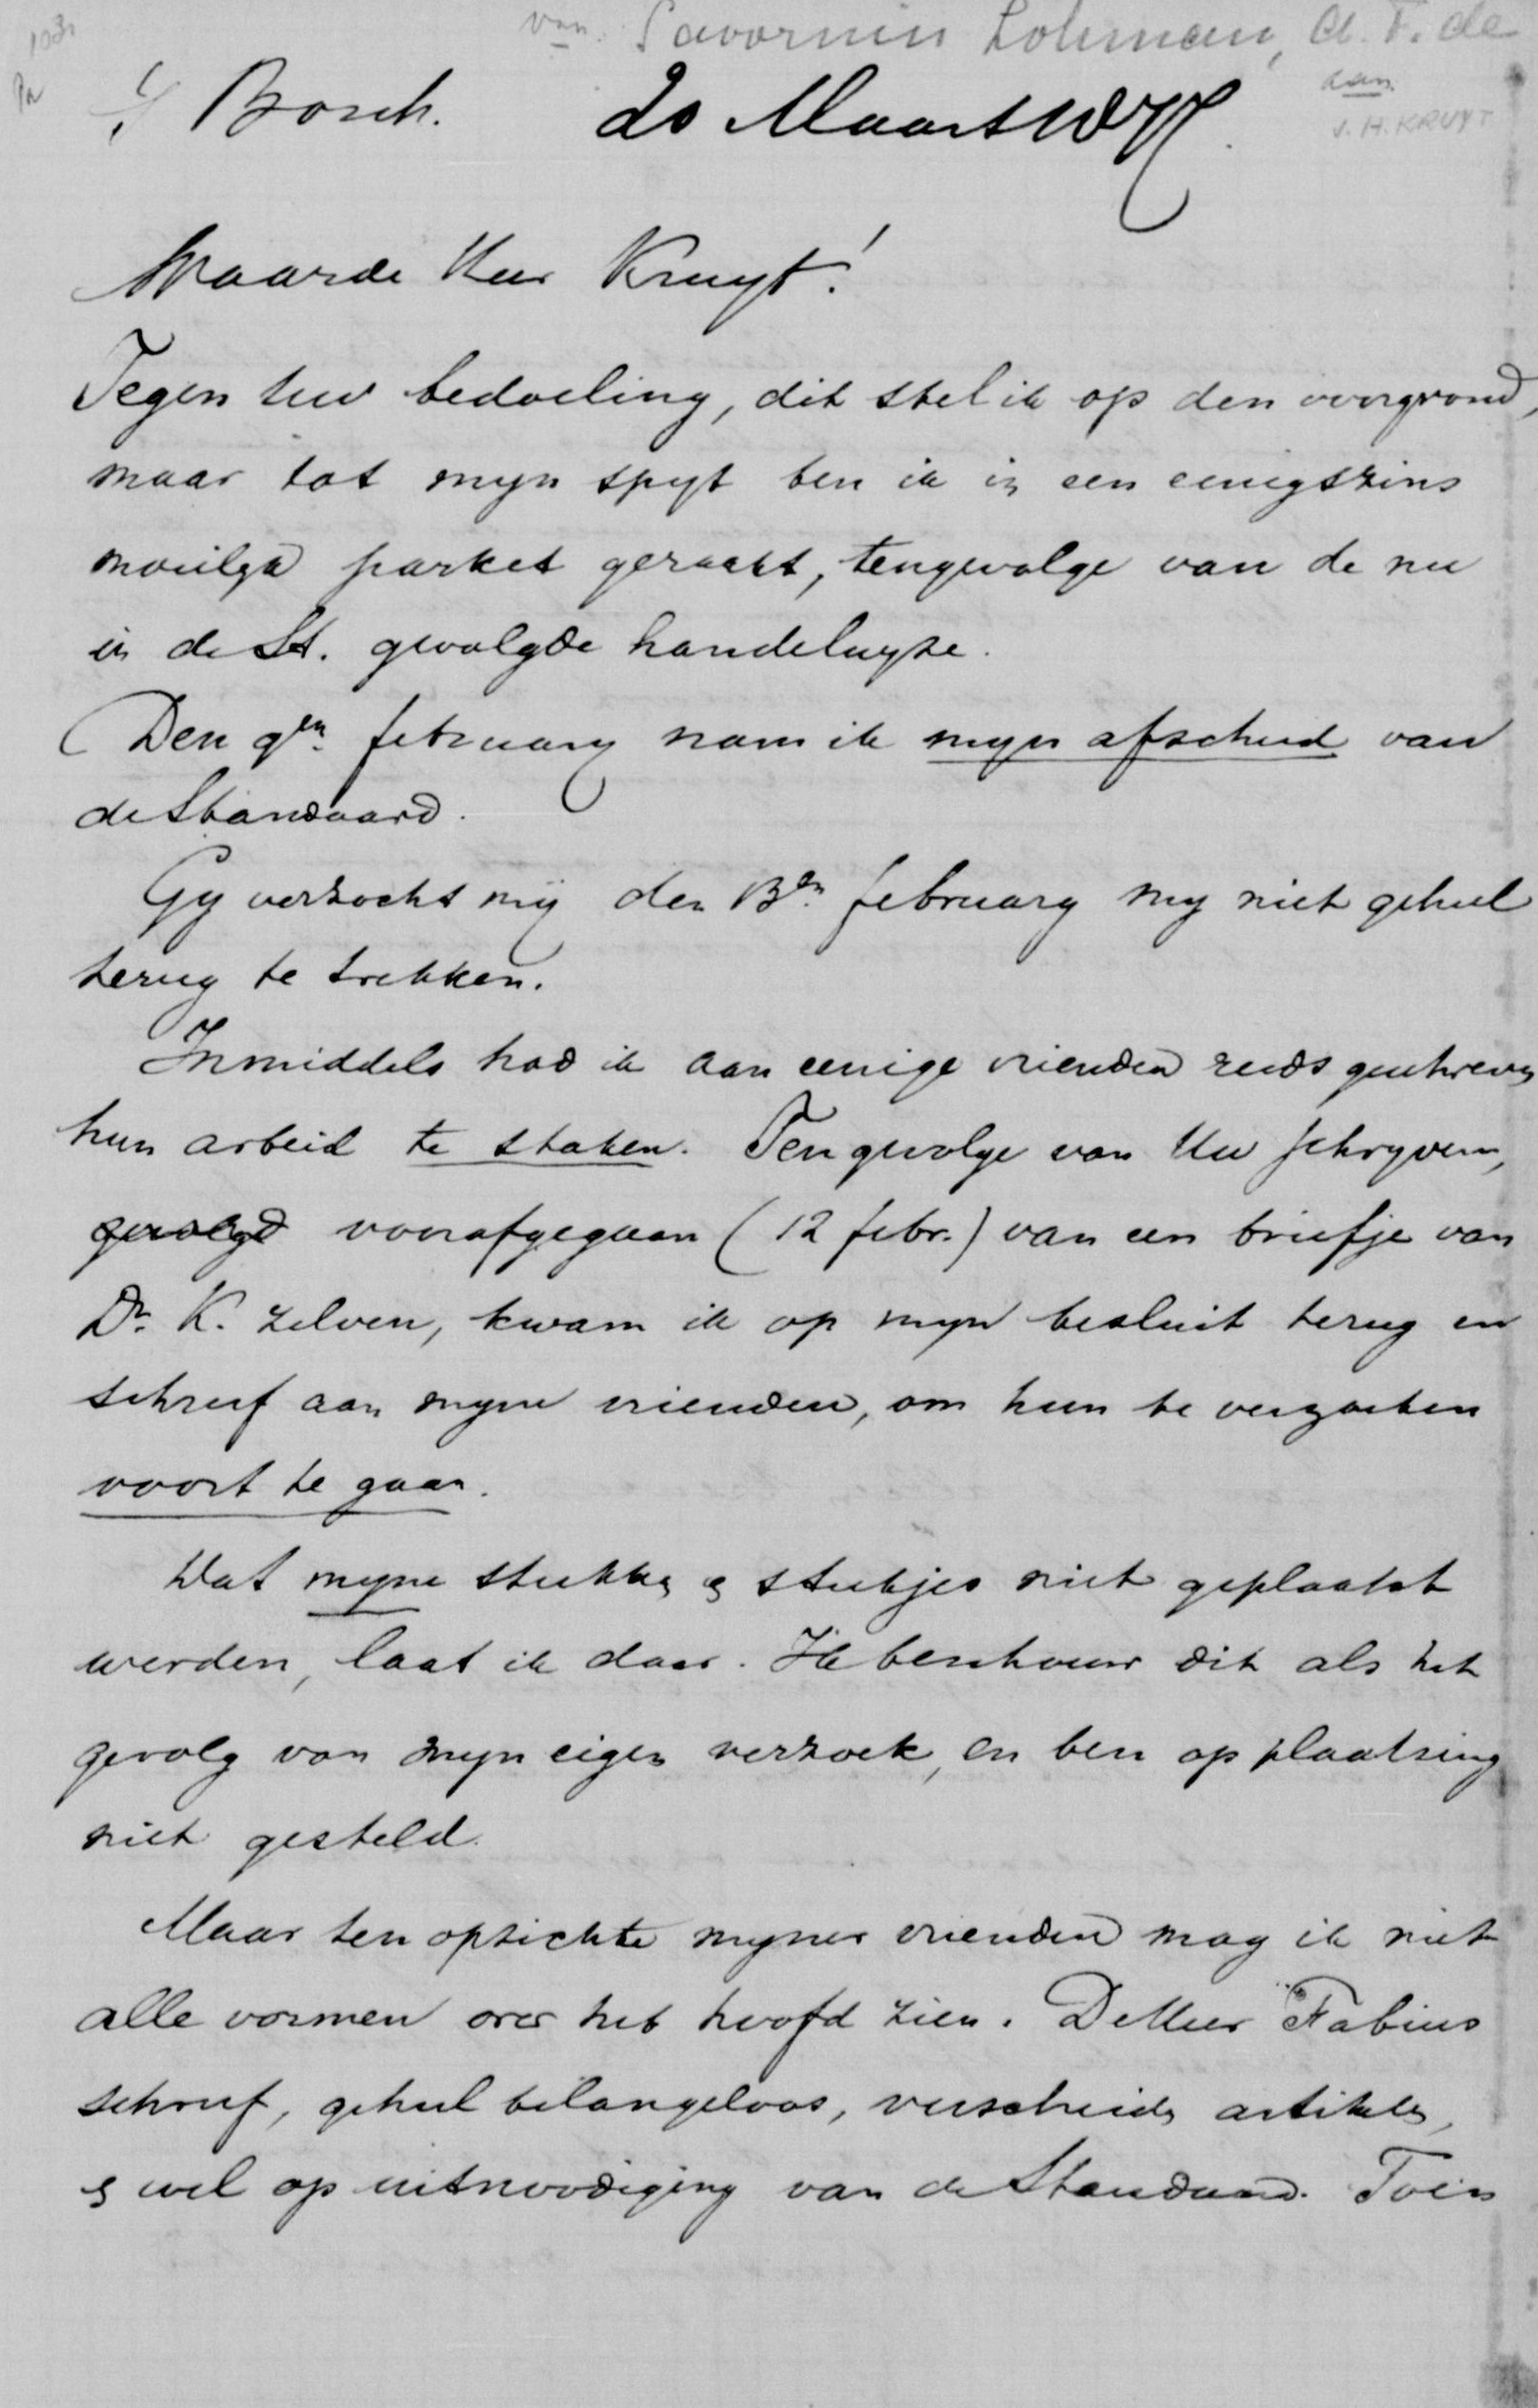 van. Savornin Lohman, A. F. de
aan
J. H. KRUYT
's Bosch. 20 Maart 1877.
Waarde Heer Kruyt!
Tegen Uw bedoeling, dit stel ik op den voorgrond,
maar tot myn spyt ben ik in een eenigszins
moeilyk parket geraakt, tengevolge van de nu
in de St. gevolgde handelwyze.
Den 9en february nam ik myn afscheid van
de Standaard.
Gy verzocht mij den 13en february my niet geheel
terug te trekken.
Inmiddels had ik aan eenige vrienden reeds geschreven
hun arbeid te staken. Ten gevolge van Uw schryven,
gevolgd voorafgegaan (12 febr.) van een briefje van
Dr. K. zelven, kwam ik op myn besluit terug en
schreef aan myne vrienden, om hun te verzoeken
voort te gaan.
Dat myne stukken en stukjes niet geplaatst
werden, laat ik daar. Ik beschouw dit als het
gevolg van myn eigen verzoek, en ben op plaatsing
niet gesteld.
Maar ten opzichte myner vrienden mag ik niet
alle vormen over het hoofd zien. De Heer Fabius
schreef, geheel belangeloos, verscheiden artikelen,
en wel op uitnoodiging van de Standaard. Toen